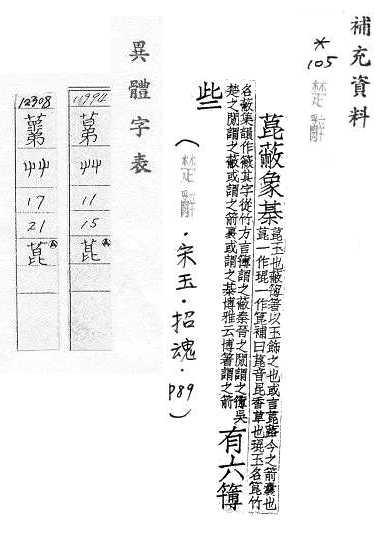 補充資料
*
105
楚辭
菎蔽象棊
菎玉也蔽簙箸以玉飾之也或言菎蕗今之箭囊也
菎一作琨一作箟補曰菎音昆香草也琨玉名箟竹
名蔽集韻作其字從竹方言簙謂之蔽秦晉之閒謂之簙吳
楚之閒謂之蔽或謂之箭裏或謂之棊博雅云博箸謂之箭
有六簙
些
(楚辭·宋玉·招魂·P89)
異體字表
11994
艸
11
15
菎
12308
艸
17
21
菎